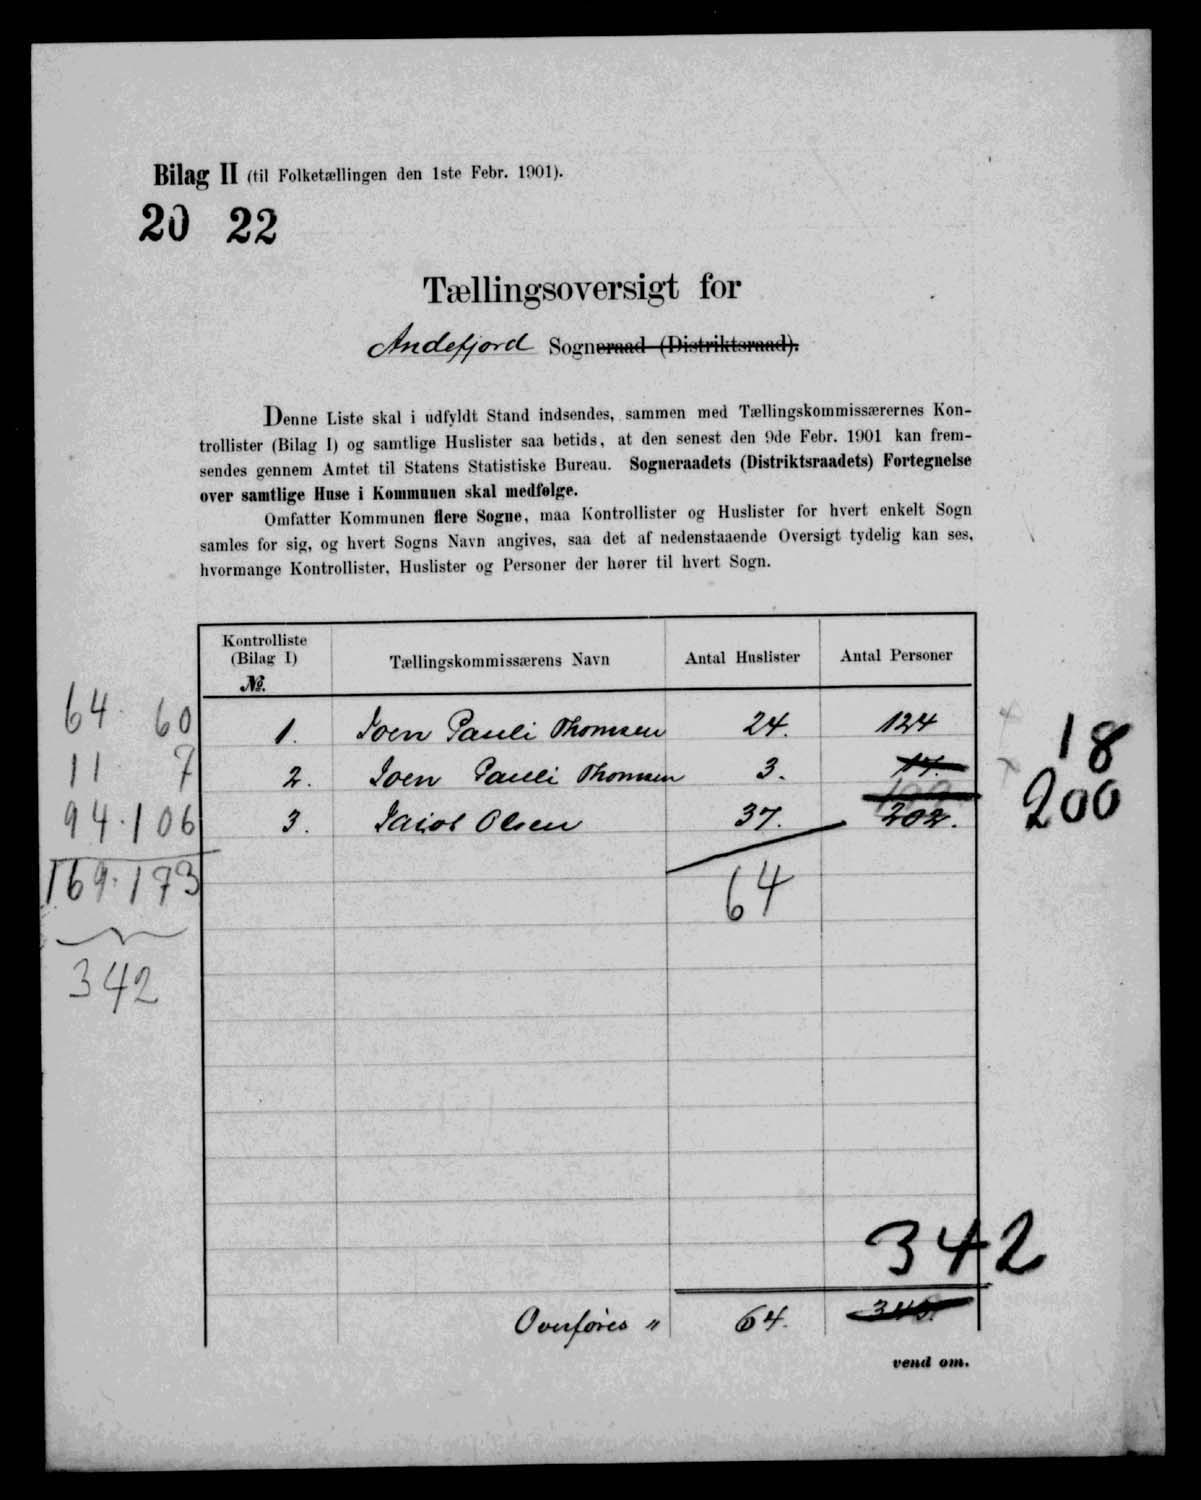 Bilag II (til Folketællingen den 1ste Febr. 1901).
20 22
Tællingsoversigt for
Andefjord Sogneraad (Distriktsraad).
Denne Liste skal i udfyldt Stand indsendes, sammen med Tællingskommissærernes Kon-
trollister (Bilag I) og samtlige Huslister saa betids, at den senest den 9de Febr. 1901 kan frem-
sendes gennem Amtet til Statens Statistiske Bureau. Sogneraadets (Distriktsraadets) Fortegnelse
over samtlige Huse i Kommunen skal medfølge.
Omfatter Kommunen flere Sogne, maa Kontrollister og Huslister for hvert enkelt Sogn
samles for sig, og hvert Sogns Navn angives, saa det af nedenstaaende Oversigt tydelig kan ses,
hvormange Kontrollister, Huslister og Personer der hører til hvert Sogn.
Kontrolliste (Bilag I) No. Tællingskommissærens Navn Antal Huslister Antal Personer
64 60 1. Joen Pauli Thomsen 24. 124
11 7 2. Joen Pauli Thomsen 3. 17. 18
94.106 3. Jacob Olsen 37. 202. 200
169.173 64
342
342
Overføres " 64.
vend om.